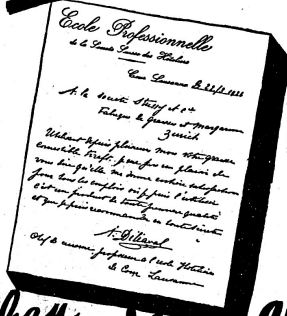 Ecole Professionnelle
de la Société Suisse des Hôteliers
Cour Lausanne le
A la société Stüssy et Cie
Fabrique de Graisses et Margarines
Zurich
Utilisant depuis plusieurs mois votre graisse
comestible je me fais un plaisir de
vous dire qu'elle me donne entière satisfaction
pour tous les emplois où je puis l'utiliser
c'est un produit de toute première qualité
et que je puis recommander en toute
Chef de cuisine, professeur à l'école Hôtelière
de Cour Lausanne